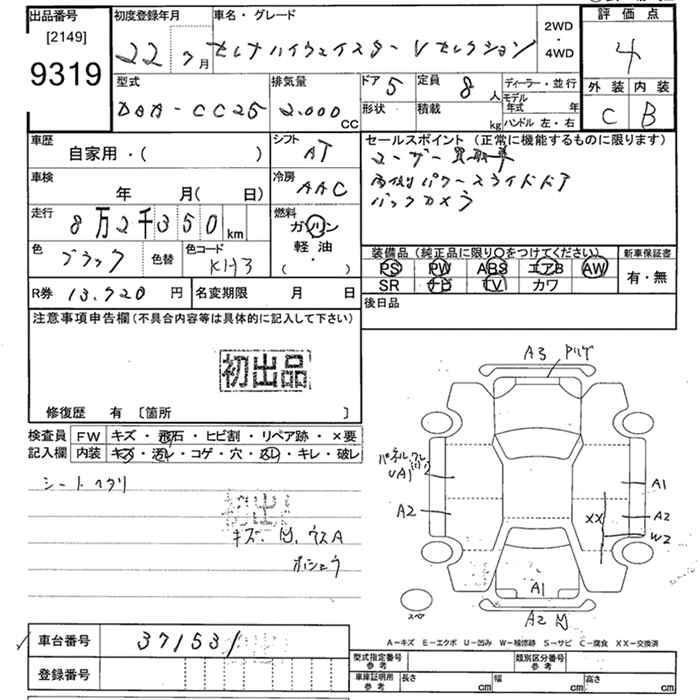 出品番号 初度登録年月 車名・グレード 2WD・4WD 評価点
[2149]
9319 22 7月 セレナハイウェイスターVセレクション 4
外装 内装
C B
型式 排気量 ドア 5 定員 8人 ディーラー・並行
DBA-CC25 2.000CC 形状 積載 kg モデル年式 年
ハンドル 左・右
車歴 自家用・( ) シフト AT セールスポイント (正常に機能するものに限ります)
ユーザー買取車
車検 年 月( 日) 冷房 AAC 両側パワースライドドア
バックカメラ
走行 8万2千350km 燃料 ガソリン
軽油
( ・ )
色 ブラック 色替 色コード KH3
装備品 (純正品に限り○をつけてください) 新車保証書
PS PW ABS エアB AW 有・無
SR ナビ TV カワ
R券 13.920円 名変期限 月 日 後日品
注意事項申告欄(不具合内容等は具体的に記入して下さい)
初出品
修復歴 有 [箇所 ]
検査員 FW キズ・飛石・ヒビ割・リペア跡・×要
記入欄 内装 キズ・汚レ・コゲ・穴・スレ・キレ・破レ
シートヘタリ
初出
キズ、凹、ウスA
A3
UA
A2
A1
XX A2
W2
A1
スペア
A2 凹
A-キズ E-エクボ U-凹み W-補修跡 S-サビ C-腐食 XX-交換済
車台番号 371531
登録番号
型式指定番号 参考 類別区分番号 参考
車庫証明用 参考 長さ cm 幅 cm 高さ cm